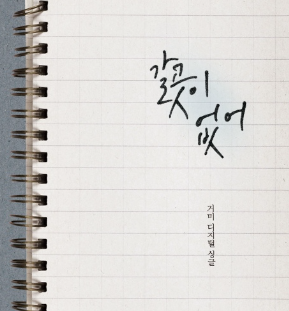 갈곳이
없어
거미 디지털 싱글